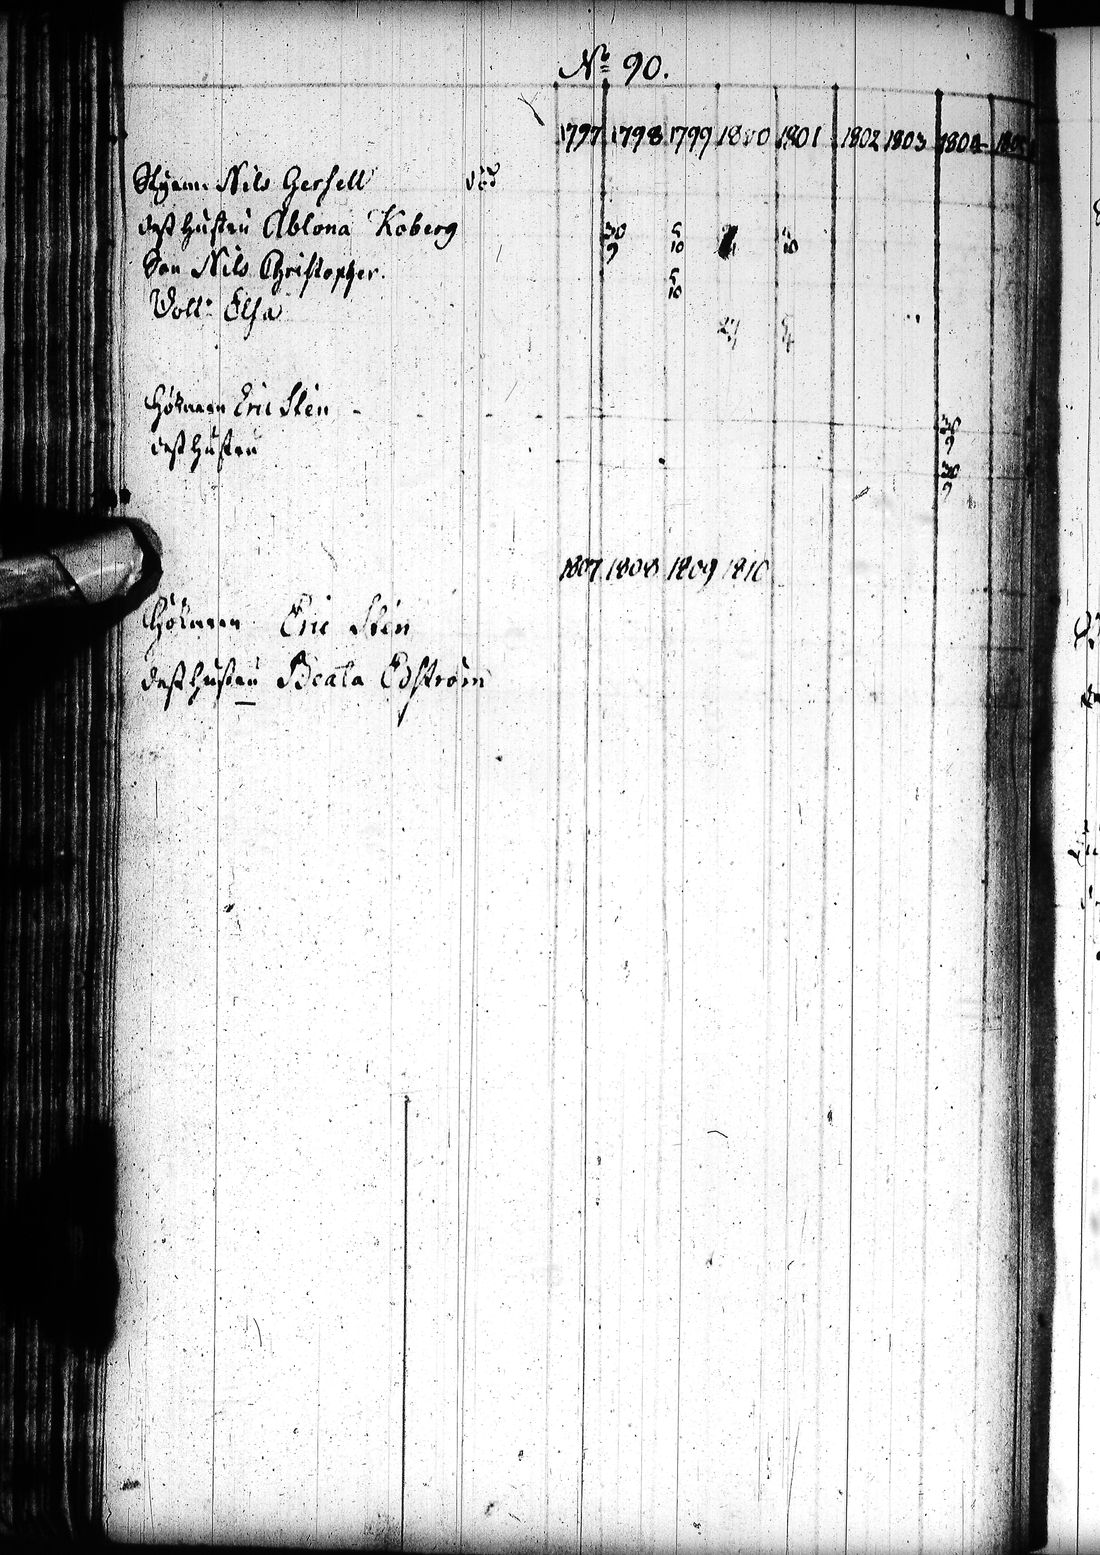 No 90.
1797 1798 1799 1800 1801 1802 1803 1804 1805
Styrm. Nils Gersell död
dess hustru Ablona Koberg 30/9 5/10
Son Nils Christopher. 5/10
Dott: Elsa
Hökaren Eric Stén
30/9
dess hustru
30/9
1807 1808 1809 1810
Hökaren Eric Stén
dess hustru Beata Edström